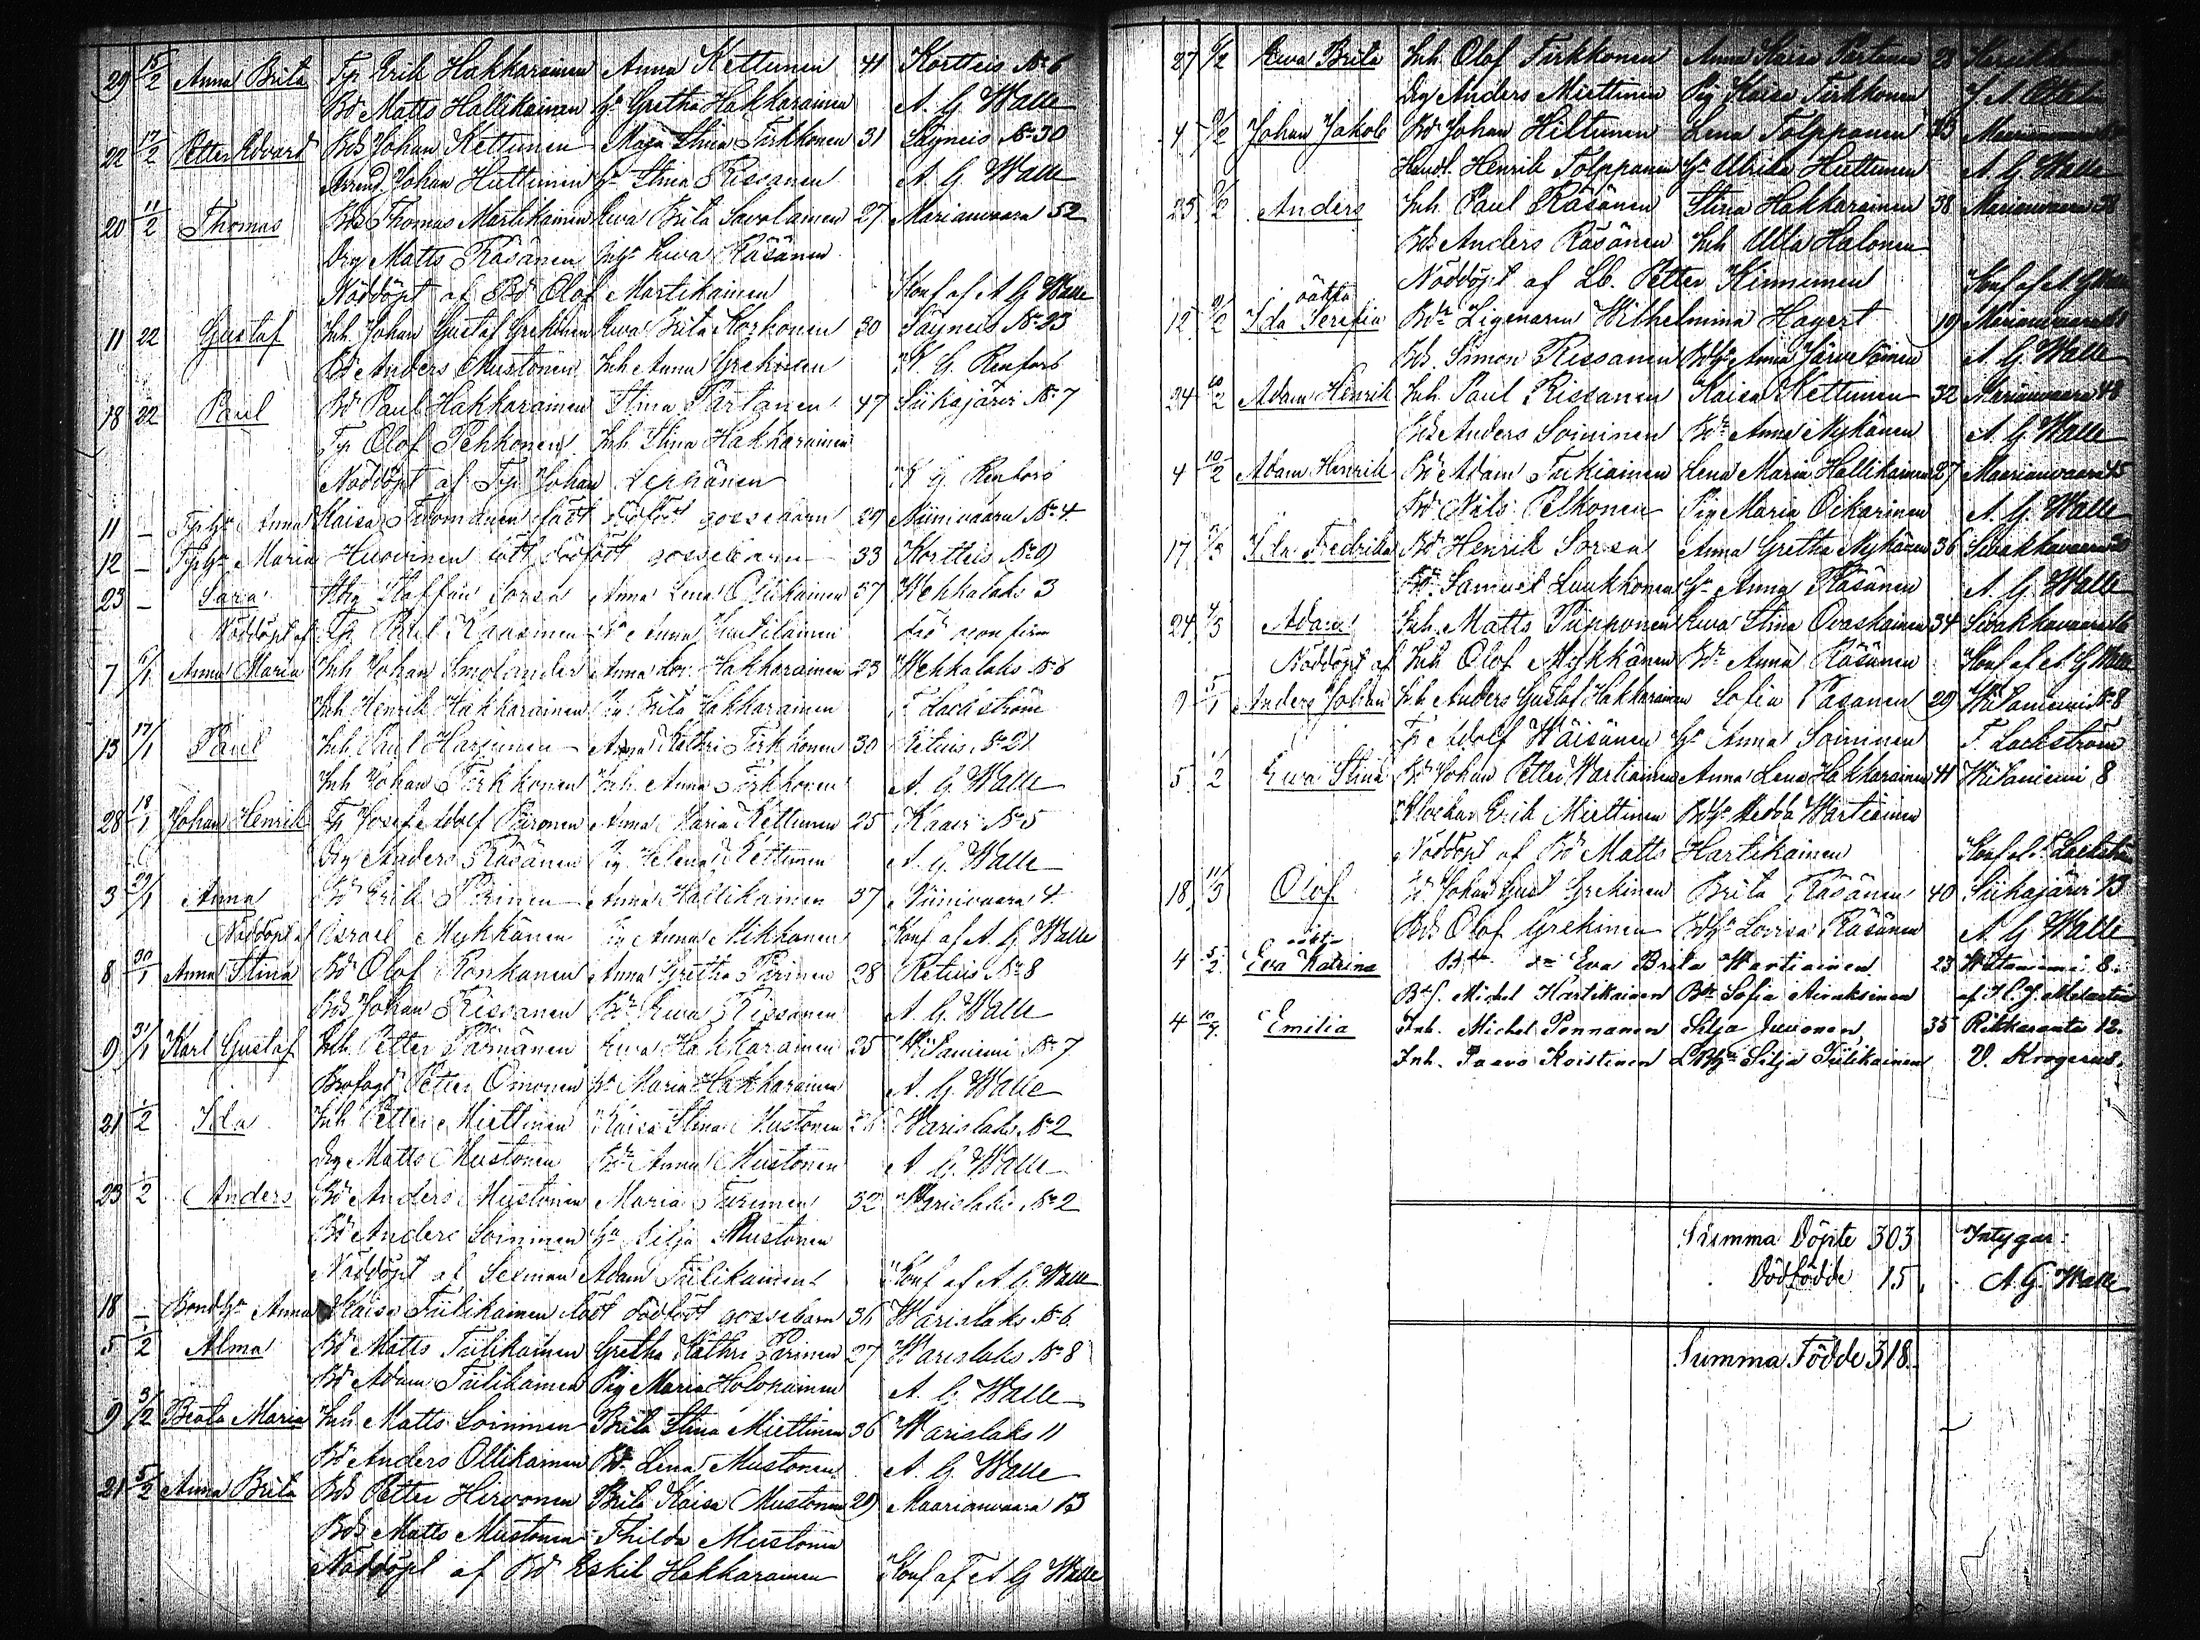 29 15/2 Anna Brita Tp Erik Hakkarainen Anna Kettunen 41 Kortteis No 6
Bd Matts Hallikainen Hu Gretha Hakkarainen A. G. Walle
22 17/2 Petter Edvard Bds Johan Kettunen Maja Stina Tirkkonen 31 Säyneis No 30
Arrend. Johan Huttunen Hu Stina Rissanen A. G. Walle
20 11/2 Thomas Bds Thomas Martikainen Ewa Brita Savolainen 27 Marianvaara 52
Drg Matts Räsänen Ewa Räsänen
Nöddöpt af Bd Olof Martikainen Konf af A G Walle
11 22 Gustaf Inh. Johan Gustaf Grekinen Ewa Brita Korhonen 30 Säyneis No 23
Bd Anders Mustonen Inh Anna Grekinen K. G. Renfors
18 22 Paul Bd Paul Hakkarainen Stina Partanen 47 Siikajärvi No 7
Tp Olof Pehkonen Inh Stina Hakkarainen
Nöddöpt af Tp Johan Leppänen K G Renfors
11 – Tp Hu Anna Kaisa Tuomainen födt dödfödt gossebarn 29 Niinivaara No 4
12 – Tp Hu Maria Huovinen födt dödfödt gossebarn 33 Kortteis No 9
23 – Sara Staffan Sorsa Anna Lena Ollikainen 37 Wehkalaks 3
Nöddöpt af Tp Paul Anna
7 6/1 Anna Maria Inh Johan Smolander Anna Lov. Hakkarainen 23 Wehkalaks No 8
Inh Henrik Hakkarainen Pig Brita Hakkarainen F. Lackström
13 17/1 Paul Inh Paul Harjunen Anna Kathri Tirkkonen 30 Retuis No 21
Inh Johan Tirkkonen Inh Anna Tirkkonen A. G. Walle
28 18/1 Johan Henrik Tp Josef Adolf Piironen Anna Maria Kettunen 25 Kaavi No 5
Drg Anders Räsänen Pig Helena Kettunen A. G. Walle
3 29/1 Anna Bd Erik Pirinen Anna Hallikainen 37 Niinivaara 4
Nöddöpt af Israel Mykkänen Pig Anna Mikkonen Konf af A. G Walle
8 30/1 Anna Stina Bd Olof Ronkanen Anna Gretha Pirinen 28 Retuis No 8
Bds Johan Rissanen Bdr Ewa Rissanen A. G. Walle
9 31/1 Karl Gustaf Inh. Petter Pärnänen Ewa Hakkarainen 25 Wiitaniemi No 7
Brofogd Petter Oinonen Hu Maria Hakkarainen A. G. Walle
21 1/2 Ida Inh Petter Miettinen Kaisa Stina Mustonen 26 Warislaks No 2
Drg Matts Mustonen Bdr Anna Mustonen A. G. Walle
23 1/2 Anders Bd Anders Mustonen Maria Turunen 32 Warislaks No 2
Bd Anders Soininen Hu Silja Mustonen
Nöddöpt af Sexman Adam Tiilikainen Konf af A. G. Walle
18 – Bond Hu Anna Kaisa Tiilikainen födt dödfödt gossebarn 36 Warislaks No 6
5 1/2 Alma Bd Matts Tiilikainen Gretha Kathri Pirinen 27 Warislaks No 8
Bd Adam Tiilikainen Pig Maria Holopainen A. G. Walle
9 3/2 Beata Maria Inh. Matts Soininen Brita Stina Miettinen 36 Warislaks 11
Bd Anders Ollikainen Bdr Lena Mustonen A. G. Walle
21 5/2 Anna Brita Bds Petter Hirvonen Brita Kaisa Mustonen 29 Maarianvaara 13
Bds Matts Mustonen Thilda Mustonen
Nöddöpt af Bd Eskil Hakkarainen Konf af A G Walle
27 6/2 Ewa Brita Inh Olof Tirkkonen Anna Kaisa Partanen 28
Drg Anders Miettinen Pig Kaisa Tirkkonen
4 9/2 Johan Jakob Bd Johan Hiltunen Lena Tolppanen
Handl. Henrik Tolppanen Hu Ulrika Huttunen A. G. Walle
25 9/2 Anders Inh Paul Räsänen Stina Hakkarainen 38 Marianvaara 38
Bds Anders Räsänen Inh Ulla Halonen
Nöddöpt af Lb. Petter Kinnunen Konf af A. G Walle
oäkta
12 9/2 Ida Serafia Bdr Ligenaren Wilhelmina Hagert 19 Marianvaara
Bds Simon Rissanen Bd Hu Anna Järveläinen A. G Walle
24 10/2 Adam Henrik Inh. Paul Rissanen Kaisa Kettunen 32 Marianvaara 48
Bds Anders Soininen Bdr Anna Nykänen A. G Walle
4 10/2 Adam Henrik Bd Adam Tukiainen Lena Maria Hallikainen 27 Maarianvaara 45
Bd Nils Pelkonen Pig Maria Oikarinen A. G. Walle
17 Ida Fredrika Bd Henrik Sorsa Anna Gretha Nykänen 36 Siwakkavaara
Bd Samuel Laukkonen Hu Anna Räsänen A. G. Walle
24 4/3 Adam Inh. Matts Piipponen Ewa Stina Ovaskainen 34 Siwakkavaara
Nöddöpt af Inh. Olof Mykkänen Bdr Anna Räsänen Konf af A. G Walle
9 Anders Johan Inh Anders Gustaf Hakkarainen Sofia Pasanen 29 Wiitaniemi No 8
Tp Adolf Wäisänen Hu Anna Soininen F. Lackström
5 1/2 Ewa Stina Bd Johan Petter Wartiainen Anna Lena Hakkarainen 41 Wiitaniemi 8
Klockar Erik Miettinen Bd Hu Hedda Wartiainen
Nöddöpt af Bd Matts Hartikainen Konf af F. Lackström
18 11/3 Olof Bd Johan Gust Grekinen Brita Räsänen 40 Siikajärvi 13
Bds Olof Grekinen Bd Hu Lovisa Räsänen A. G Walle
oäkta
4 5/2 Eva Katrina Eva Brita Wartiainen 23 Wiitaniemi 8.
Bd S. Michel Hartikainen Bdr Sofia Airaksinen
4 10/9 Emilia Inh. Michel Pennanen Silja Juvonen 35 Rikkaranta 12.
Inh. Paavo Koistinen Silja Tiilikainen V. Krogerus.
Summa Döpte 303 Intygar:
Dödfödde 15. A. G. Walle
Summa Födde 318.